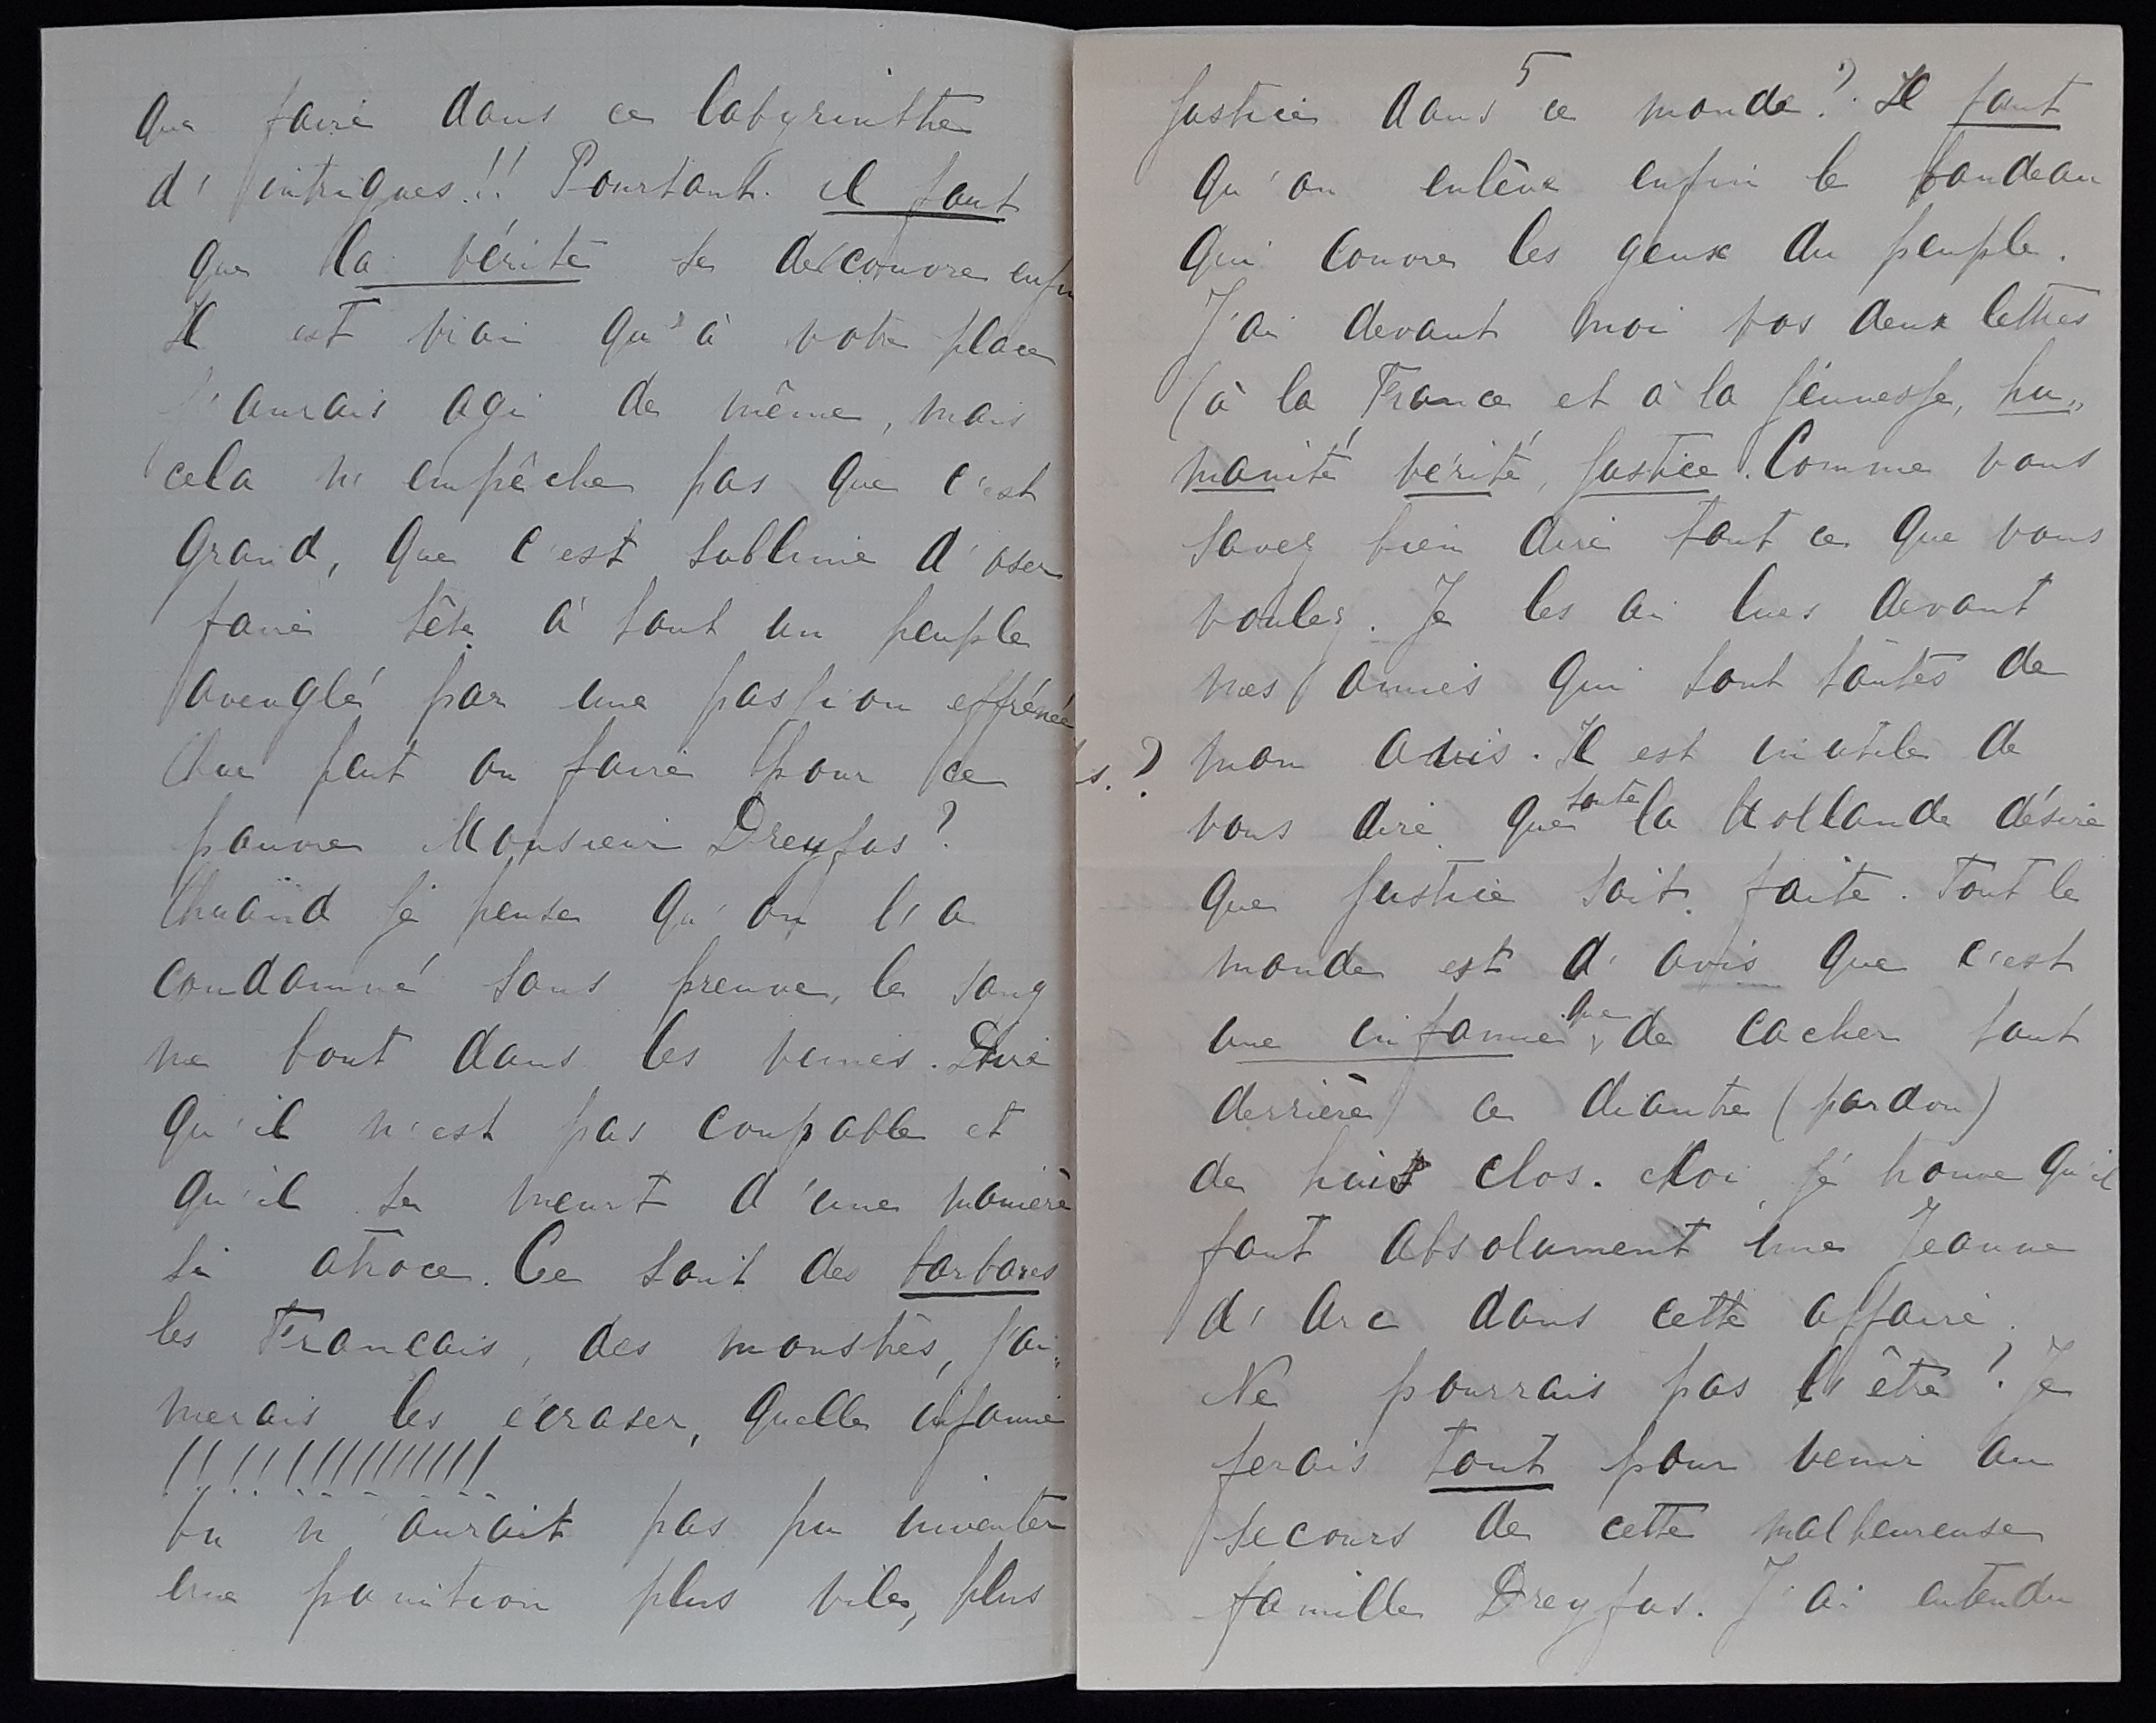 Que faire dans ce labyrinthe
d'intriques!! Pourtant. il faut
que la vérité se découvre enfin
Il est vrai qu'à votre place
j'aurais agi de même, mais
cela n'empêche pas que c'est
grand, que c'est sublime d'oser
faire tête à tout un peuple
aveuglé par une passion effrénée
Que peut on faire pour ce
pauvre Monsieur Dreyfus?
Quand je pense qu'on l'a
condamné sans preuve, le sang
me bout dans les veines. Dire
qu'il n'est pas coupable et
qu'il se meurt d'une manière
si atroce. Ce sont des barbares
les Francais, des monstres, j'ai„
merais les écraser, quelle infamie
!!!!!!!!!!!!!!
On n'aurait pas pu inventer
une punition plus vile, plus
5
justice dans ce monde? Il faut
qu'on enlève enfin le bandeau
qui couvre les yeux du peuple.
J'ai devant moi vos deux lettres
(à la France et à la jeunesse, hu„
manité, vérité, justice. Comme vous
savez bien dire tout ce que vous
voulez. Je les ai lues devant
mes amies qui sont toutes de
mon avis. Il est inutile de
vous dire que toute la Hollande désire
que justice soit faite. Tout le
monde est d'avis que c'est
une infamie que de cacher tout
derrière ce diantre (pardon)
de huis clos. Moi, je trouve qu'il
faut absolument une Jeanne
d'Arc dans cette affaire.
Ne pourrais pas l'être? Je
ferais tout pour venir au
secours de cette malheureuse
famille Dreyfus. J'ai entendu